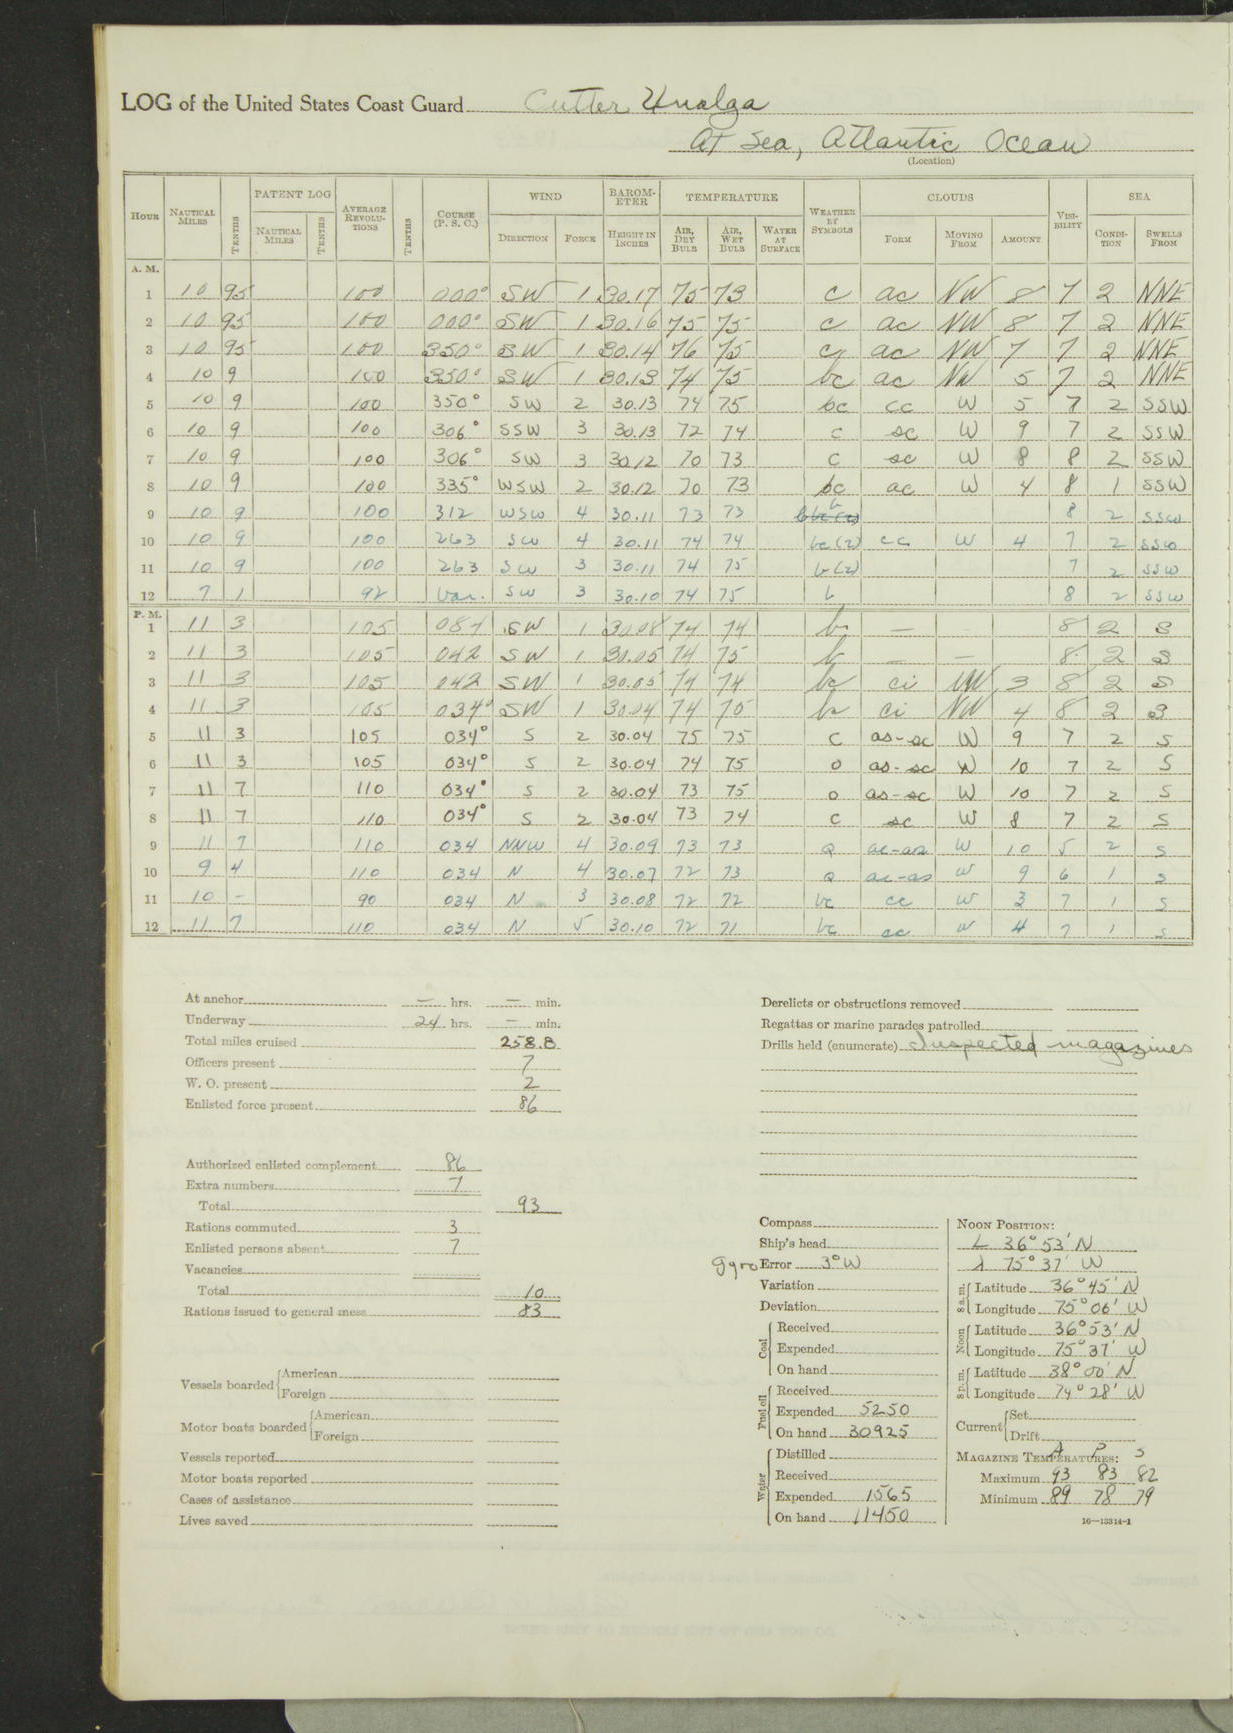 LOG of the United States Coast Guard Cutter Unalga
At Sea, Atlantic Ocean
(Location)
HOUR NAUTICAL MILES TENTHS PATENT LOG NAUTICAL MILES TENTHS AVERAGE REVOLUTIONS TENTHS COURSE (P. S. C.) WIND DIRECTION FORCE BAROMETER HEIGHT IN INCHES TEMPERATURE AIR, DRY BULB AIR, WET BULB WATER AT SURFACE WEATHER BY SYMBOLS CLOUDS FORM MOVING FROM AMOUNT VISIBILITY SEA CONDITION SWELLS FROM
A. M.
1 10 95 100 000° SW 1 30.17 75 73 c ac NW 8 7 2 NNE
2 10 95 100 000° SW 1 30.16 75 75 c ac NW 8 7 2 NNE
3 10 95 100 350° SW 1 30.14 76 75 c ac NW 7 7 2 NNE
4 10 9 100 350° SW 1 30.13 74 75 bc ac NW 5 7 2 NNE
5 10 9 100 350° SW 2 30.13 74 75 bc cc W 5 7 2 SSW
6 10 9 100 306° SSW 3 30.13 72 74 c sc W 9 7 2 SSW
7 10 9 100 306° SW 3 30.12 70 73 c sc W 8 8 2 SSW
8 10 9 100 335° WSW 2 30.12 70 73 bc ac W 4 8 1 SSW
9 10 9 100 312 WSW 4 30.11 73 73 b 8 2 SSW
10 10 9 100 263 SW 4 30.11 74 74 bc (z) cc W 4 7 2 SSW
11 10 9 100 263 SW 3 30.11 74 75 b (z) 7 2 SSW
12 7 1 92 Var. SW 3 30.10 74 75 b 8 2 SSW
P. M.
1 11 3 105 087 SW 1 30.08 74 74 b — 8 2 S
2 11 3 105 042 SW 1 30.05 74 75 b — — 8 2 S
3 11 3 105 042 SW 1 30.05 74 74 bc ci NW 3 8 2 S
4 11 3 105 034° SW 1 30.04 74 75 bc ci NW 4 8 2 S
5 11 3 105 034° S 2 30.04 75 75 c as-sc W 9 7 2 S
6 11 3 105 034° S 2 30.04 74 75 o as-sc W 10 7 2 S
7 11 7 110 034° S 2 30.04 73 75 o as-sc W 10 7 2 S
8 11 7 110 034° S 2 30.04 73 74 c sc W 8 7 2 S
9 11 7 110 034 NNW 4 30.09 73 73 ac-as W 10 5 2 S
10 9 4 110 034 N 4 30.07 72 73 ac-as W 9 6 1 S
11 10 – 90 034 N 3 30.08 72 72 bc cc W 3 7 1 S
12 11 7 110 034 N 5 30.10 72 71 bc cc W 4 7 1 S
At anchor — hrs. — min.
Underway 24 hrs. — min.
Total miles cruised 258.8
Officers present 7
W. O. present 2
Enlisted force present 86
Authorized enlisted complement 86
Extra numbers 7
Total 93
Rations commuted 3
Enlisted persons absent 7
Vacancies
Total 10
Rations issued to general mess 83
Vessels boarded American
Foreign
Motor boats boarded American
Foreign
Vessels reported
Motor boats reported
Cases of assistance
Lives saved
Derelicts or obstructions removed
Regattas or marine parades patrolled
Drills held (enumerate) Inspected magazines
Compass
Ship's head
Gyro Error 3° W
Variation
Deviation
Coal Received
Expended
On hand
Fuel oil Received
Expended 5250
On hand 30925
Water Distilled
Received
Expended 1565
On hand 11450
NOON POSITION:
L 36° 53' N
λ 75° 37' W
8 a.m. Latitude 36° 45' N
Longitude 75° 06' W
Noon Latitude 36° 53' N
Longitude 75° 37' W
8 p.m. Latitude 38° 00' N
Longitude 74° 28' W
Current Set
Drift
MAGAZINE TEMPERATURES: A P S
Maximum 93 83 82
Minimum 89 78 79
16—13314-1